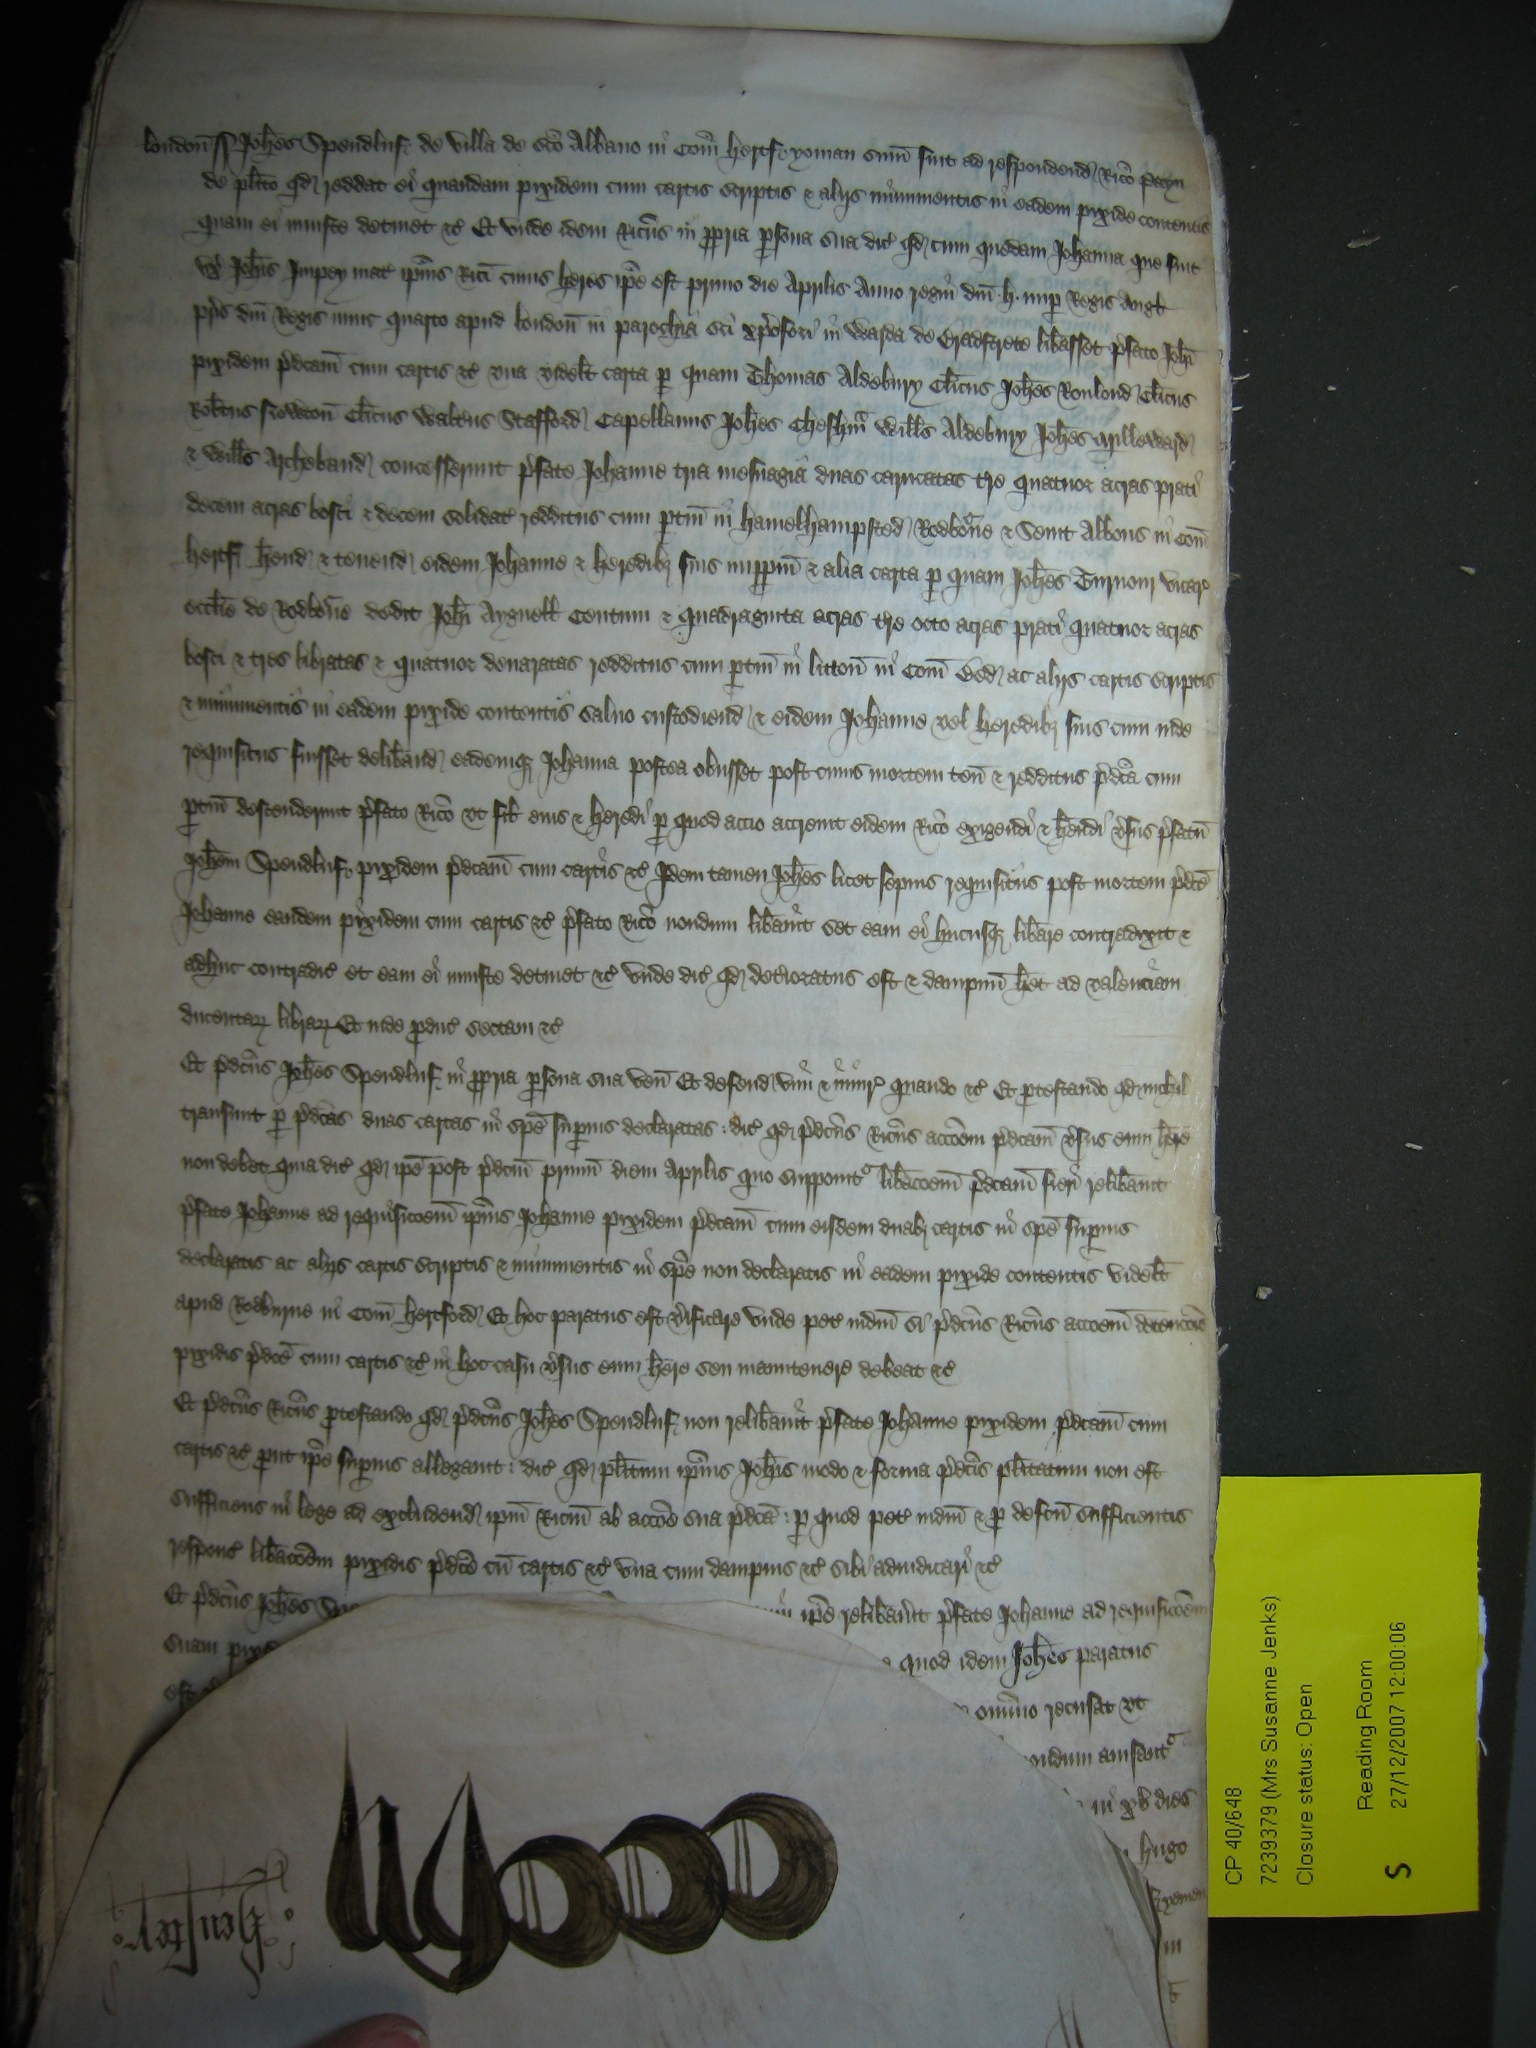 london̄ ss Joh̄es Spendluf de villa de sc̄o Albano in Com̄ hertf yoman sum̄ fuit ad respondend Ric̄o
de pl̄ito qd reddat ei quandam pixidem cum cartis scriptis & alijs munimentis in eadem pixide contentis
quam ei iniuste detinet &c Et vnde idem Ric̄us in ppria psona sua dic̄ qd cum quedam Johanna que fuit
vx̄ Joh̄is Impey mat̄ ip̄ius Ric̄i cuius heres ip̄e est primo die Aprilis Anno regni dn̄i h nup Regis Angl
pr̄is dn̄i Regis nunc quarto apud london̄ in parochia sc̄i xp̄ofori in Warda de Bradstrete lib̄asset p̄fato Joh̄i
pixidem p̄dcam̄ cum cartis &c vna videlt carta p quam Thomas Aldebury Cl̄icus Joh̄es Roulond Cl̄icus
Rob̄tus Cl̄icus Walt̄us Stafford Capellanus Joh̄es Chesh̄m Will̄s Aldebury Joh̄es Milleward
& Will̄s Archebaud concesserunt p̄fate Johanne tria mesuagia duas carucatas t̄re quatuor acras prati
decem acras bosci & decem solidat̄ redditus cum ptin̄ in hamelhampsted Rodborne & Seint Albons in Com̄
hertf h̄end & tenend eidem Johanne & heredib; suis imppm̄ & alia carta p quam Joh̄es Turnour vicar̄
eccl̄ie de Rodborne dedit Joh̄i Aygnell Centum & quadraginta acras t̄re octo acras prati quatuor acras
bosci & tres libratas & quatuor denaratas redditus cum ptin̄ in litton̄ in Com̄ Bed ac alijs cartis scriptis
& munimentis in eadem pixide contentis saluo custodiend & eidem Johanne vel heredib; suis cum inde
requisitus fuisset delib̄and eademq; Johanna postea obijsset post cuius mortem ten̄ & redditus p̄dc̄a cum
ptin̄ descenderunt p̄fato Ric̄o vt fil̄ eius & heredi p quod accio accreuit eidem Ric̄o exigendi & h̄endi v̄sus p̄fatū
Joh̄em Spendluf pixidem p̄dcam̄ cum cartis &c Idem tamen Joh̄es licet sepius requisitus post mortem p̄dc̄e
Johanne eandem pixidem cum cartis &c p̄fato Ric̄o nondum lib̄auit set eam ei hucusq; lib̄are contradixit &
adhuc contradic̄ et eam ei iniuste detinet &c vnde dic̄ qd det̄ioratus est & dampnū h̄et ad valenciam
ducentar librar Et inde pduc̄ sectam &c
Et p̄dc̄us Joh̄es Spendluf in ppria psona sua ven̄ Et defend vim & iniur̄ quando &c Et ptestando qd nichil
transiuit p p̄dc̄as duas cartas in sp̄e supius declaratas : dic̄ qd p̄dc̄us Ric̄us acc̄oem p̄dcam̄ v̄sus eum h̄ere
non debet quia dic̄ qd ip̄e post p̄dcm̄ primū diem Aprilis quo supponit lib̄acoem̄ p̄dcam̄ fieri relib̄auit
p̄fate Johanne ad requisicoem̄ ip̄ius Johanne pixidem p̄dcam̄ cum eisdem duab; cartis in sp̄e supius
declaratis ac alijs cartis scriptis & munimentis in sp̄e non declaratis in eadem pixide contentis videlt
apud Rodburne in Com̄ hertford Et hoc paratus est v̄ificare vnde pet̄ iudm̄ si p̄dc̄us Ric̄us accoem̄ detencois̄
pixidis p̄dc̄e cum cartis &c in hoc casu v̄sus eum h̄ere seu manutenere debeat &c
Et p̄dc̄us Ric̄us ptestando qd p̄dc̄us Joh̄es Spendluf non relib̄auit p̄fate Johanne pixidem p̄dcam̄ cum
cartis &c put ip̄e supius allegauit : dic̄ qd pl̄itum ip̄ius Joh̄is modo & forma p̄dc̄is pl̄itatum non est
sufficiens in lege ad excludend ip̄m Ric̄m ab acc̄oe sua p̄dc̄a : p quod pet̄ iudm̄ & p defcū sufficientis
respons̄ lib̄acoem̄ pixidis p̄dc̄e cū cartis &c vna cum dampnis &c sibi adiudicari &c
Et p̄dc̄us Joh̄es ip̄e relib̄auit p̄fate Johanne ad requisicoem̄
suam quod idem Joh̄es paratus
est om̄ino recusat vt
in xv dies
hugo
CP 40/648
7239379 (Mrs Susanne Jenks)
Closure status: Open
Reading Room
27/12/2007 12:00:06
S